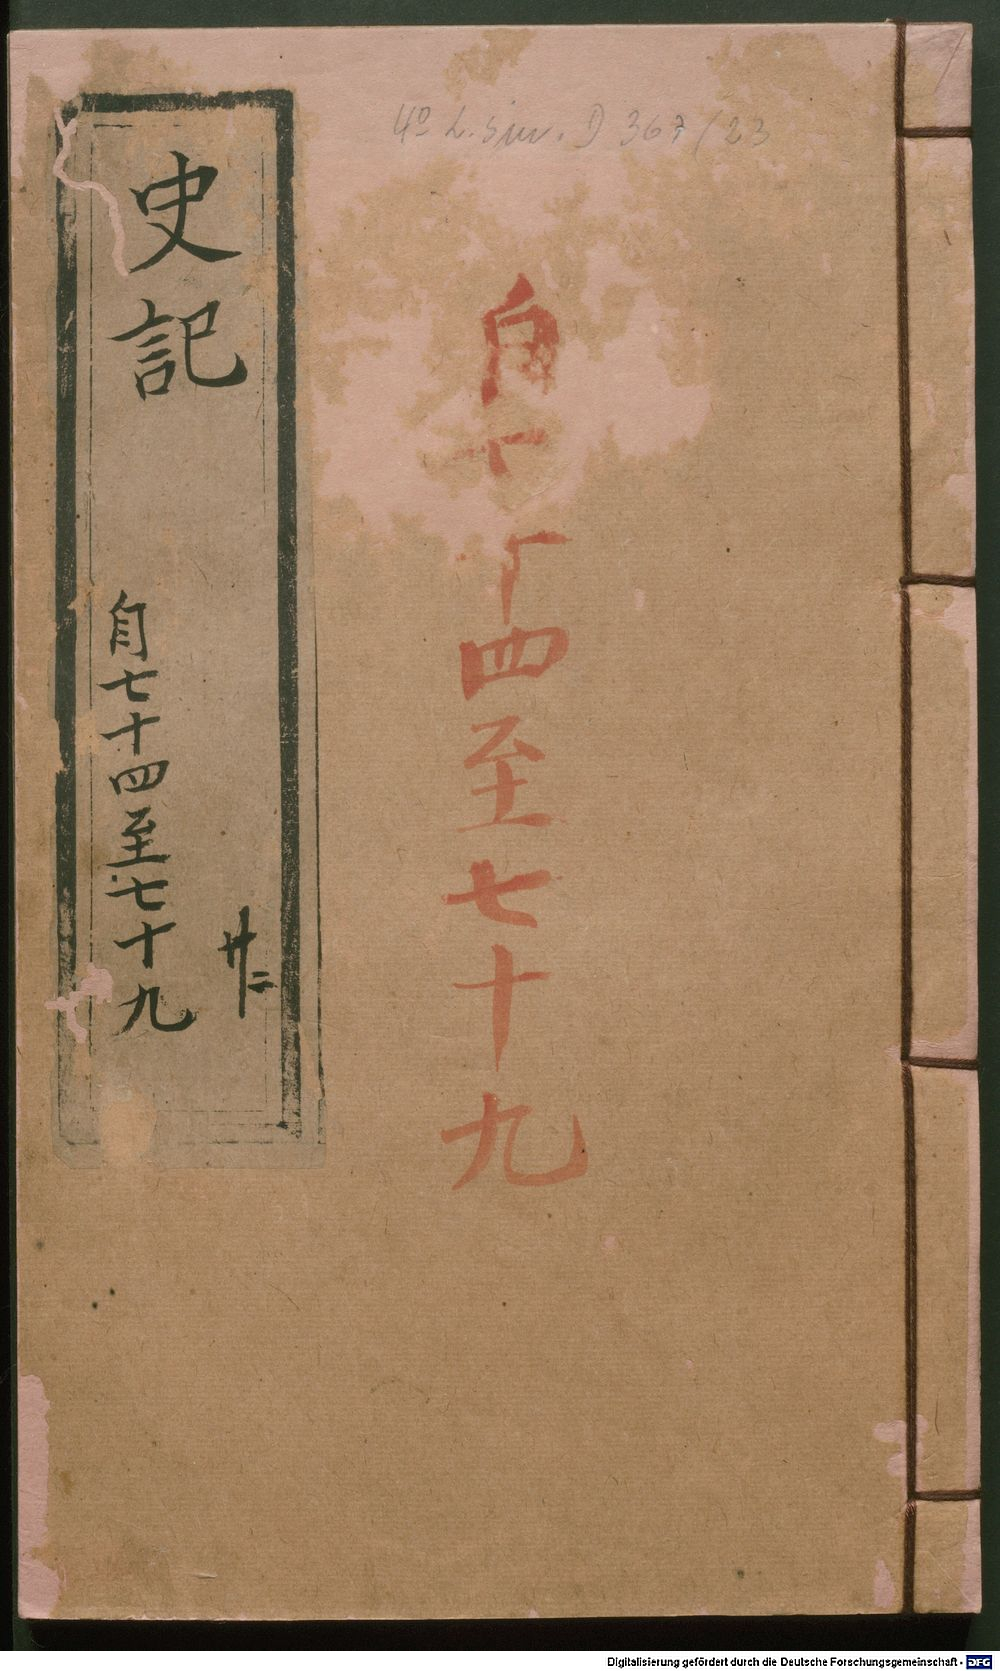 4° L. sin. D 367/23
自七十四至七十九
史記
自七十四至七十九
廿二
Digitalisierung gefördert durch die Deutsche Forschungsgemeinschaft - DFG